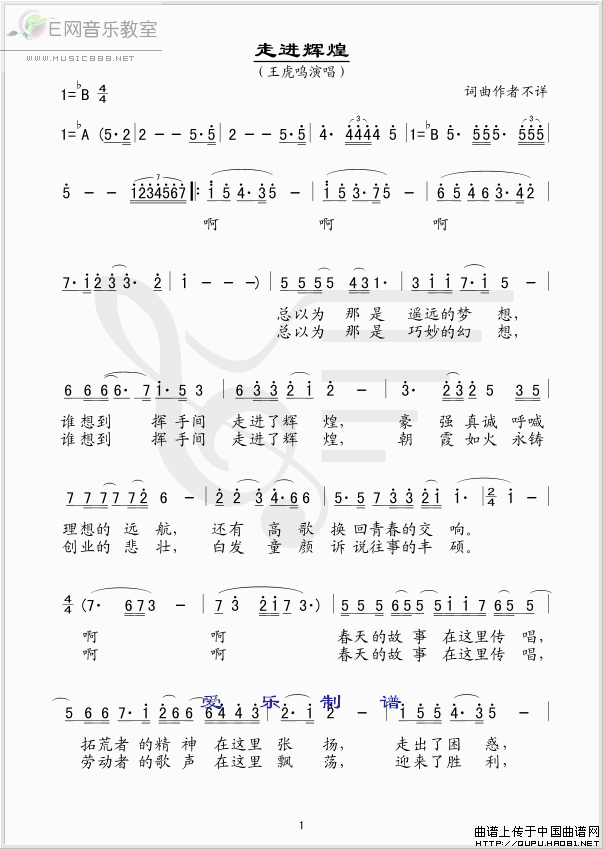 E网音乐教室
WWW.MUSIC888.NET
走进辉煌
（王虎鸣演唱）
1=♭B 4/4
词曲作者不详
1=♭A (5·2 | 2 - - 5·5 | 2 - - 5·5 | 4· 4444 5 | 1=♭B 5· 555 5· 555 |
5 - - 1234567 |: 1 5 4·3 5 | 1 5 3·7 5 - | 6 5 4 6 3·4 2 |
啊 啊 啊
7·1 2 3 3· 2 | 1 - - -) | 5 5 5 5 4 3 1· | 3 1 1 7·1 5 - |
总以为 那 是 遥远的梦 想，
总以为 那 是 巧妙的幻 想，
6 6 6 6· 7 1· 5 3 | 6 3 3 2 1 2 - | 3· 2 3 2 5 3 5 |
谁想到 挥手间 走进了辉 煌， 豪 强真诚 呼喊
谁想到 挥手间 走进了辉 煌， 朝 霞如火 永铸
7 7 7 7 7 2 6 - | 2 2 3 4·6 6 | 5· 5 7 3 3 2 1 1· | 2/4 1 - |
理想的 远 航， 还有 高 歌 换 回青春的交 响。
创业的 悲 壮， 白发 童 颜 诉 说往事的丰 硕。
4/4 (7· 6 7 3 - | 7 3 2 1 7 3·) | 5 5 5 6 5 5 5 1 1 7 6 5 |
啊 啊 春天的故 事 在这里传 唱，
啊 啊 春天的故 事 在这里传 唱，
爱 乐 制 谱
5 6 6 7· 1 2 6 6 6 4 4 3 | 2· 1 2 - | 1 5 5 4·3 5 |
拓荒者 的精 神 在这里 张 扬， 走出了困 惑，
劳动者 的歌 声 在这里 飘 荡， 迎来了胜 利，
1
曲谱上传于中国曲谱网
HTTP://QUPU.HAO81.NET